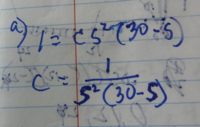 a) 1 = c 5² (30-5)
c = 1 / 5² (30-5)